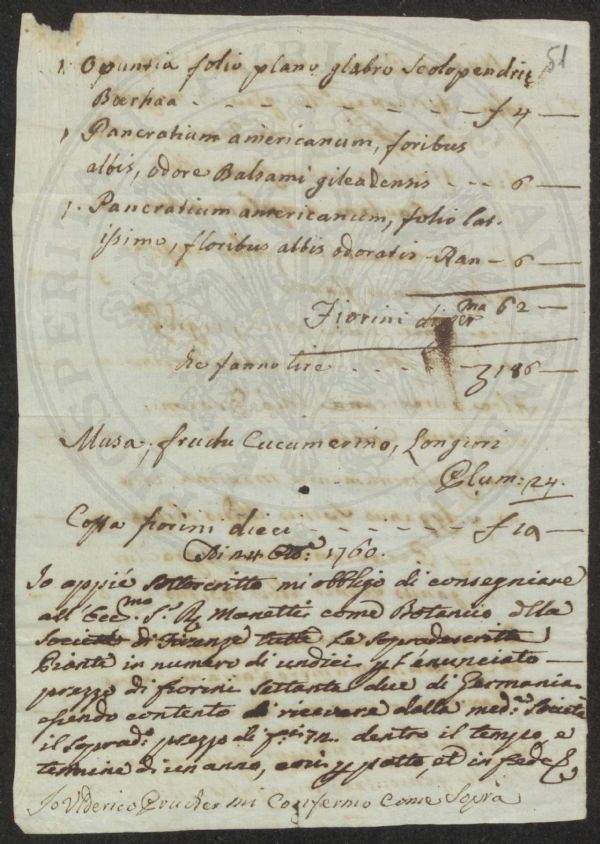 51
1. Opuntia folio plano glabro Scolopendrij
Boerhaa - - - - - - - - - f 4 —
1 Pancratium americanum, foribus
albis, odore Balsami gileadensis - - - 6 —
1. Pancratium americanum, folio lat-
issimo, floribus albis odoratis Ran - 6 —
Fiorini di Germa 62 —
che fanno lire - - - - - 186 —
Musa, fructu Cucumerino, Longiori
Plum: 24.
Costa fiorini dieci - - - - - f 10 —
1760.
Io appié sottoscritto mi obbligo di consegniare
all' Eccmo. Sr. Manetti come Botanico della
Società di Firenze tutte le sopradescritte
Piante in numero di undici p l'anunciato
prezzo di fiorini settanta due di Germania
essendo contento di ricevere dalla meda. Società
il soprado. prezzo di fni 72. dentro il tempo, e
termine di un anno, così p patto, et in fede
Io Viderico Prucker mi Confermo Come Sopra